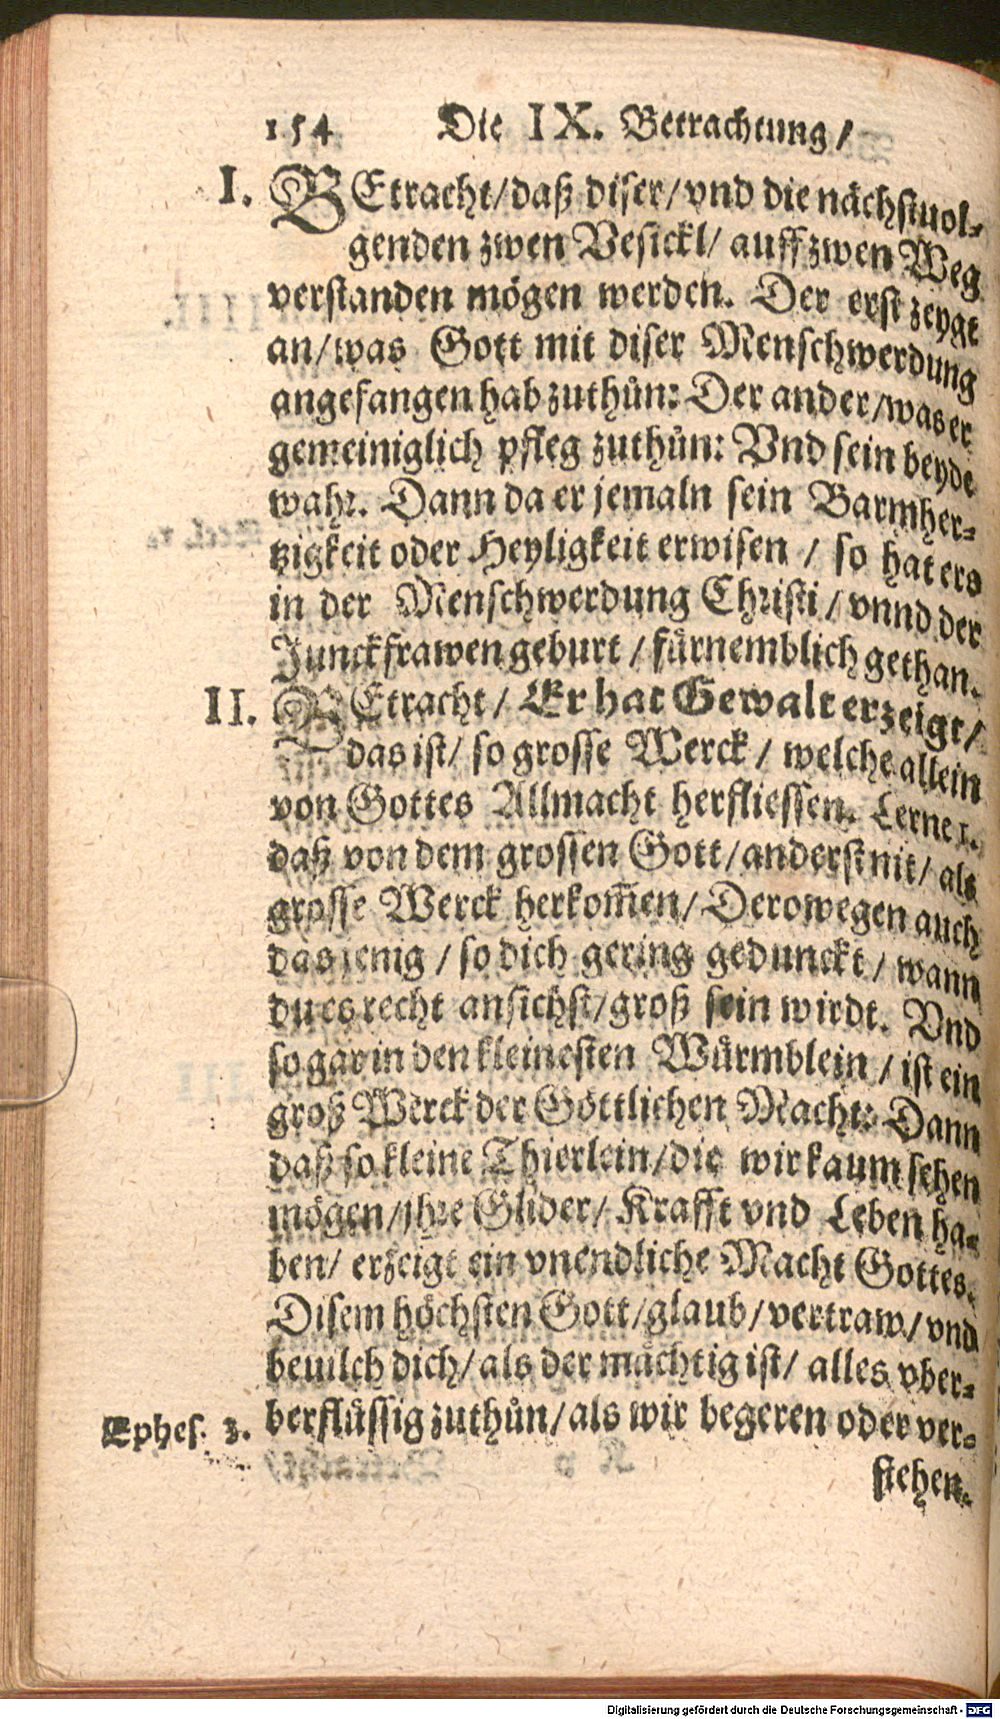 154 Die IX. Betrachtung/
I. BEtracht/daß diser/vnd die nächstuol-
genden zwen Vesickl/ auff zwen Weg
verstanden mögen werden. Der erst zeygt
an/was Gott mit diser Menschwerdung
angefangen hab zuthůn: Der ander/was er
gemeiniglich pfleg zuthůn: Vnd sein beyde
wahr. Dann da er jemaln sein Barmher-
tzigkeit oder Heyligkeit erwisen / so hat ers
in der Menschwerdung Christi / vnnd der
Junckfrawen geburt / fürnemblich gethan.
II. BEtracht / Er hat Gewalt erzeigt/
das ist/ so grosse Werck / welche allein
von Gottes Allmacht herfliessen. Lerne 1.
daß von dem grossen Gott/anderst nit/ als
grosse Werck herkom̃en/ Derowegen auch
das jenig / so dich gering gedunckt / wann
du es recht ansichst/groß sein wirdt. Vnd
so gar in den kleinesten Würmblein / ist ein
groß Werck der Göttlichen Macht: Dann
daß so kleine Thierlein/die wir kaum sehen
mögen/jhre Glider/ Krafft vnd Leben ha-
ben/ erzeigt ein vnendliche Macht Gottes.
Disem höchsten Gott/glaub/vertraw/vnd
beuilch dich/als der mächtig ist/ alles vber-
Ephes. 3. berflüssig zuthůn/als wir begeren oder ver-
stehen.
Digitalisierung gefördert durch die Deutsche Forschungsgemeinschaft - DFG